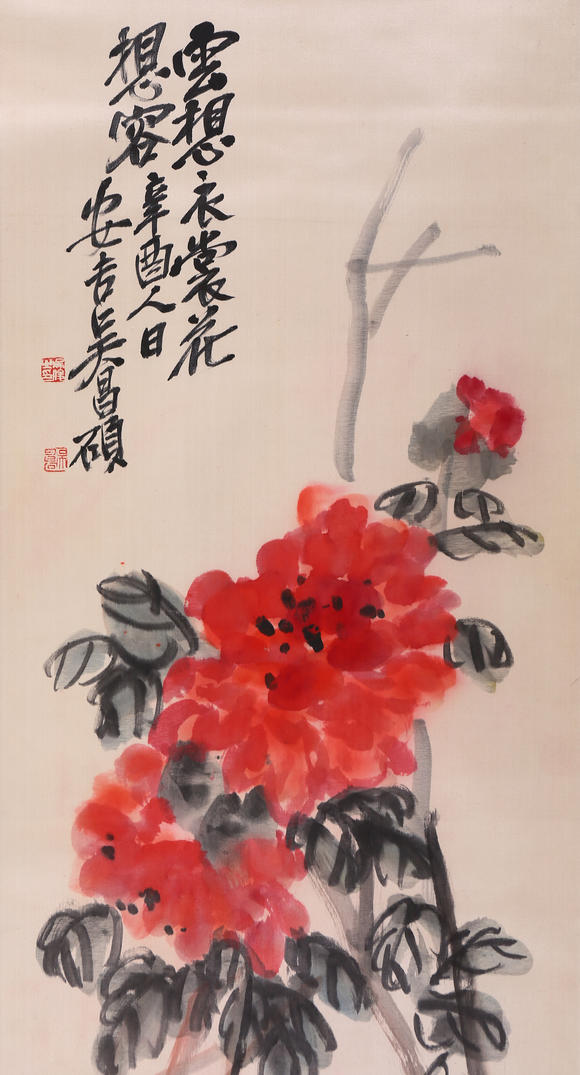 雲想衣裳花
想容辛酉人日
安吉吳昌碩